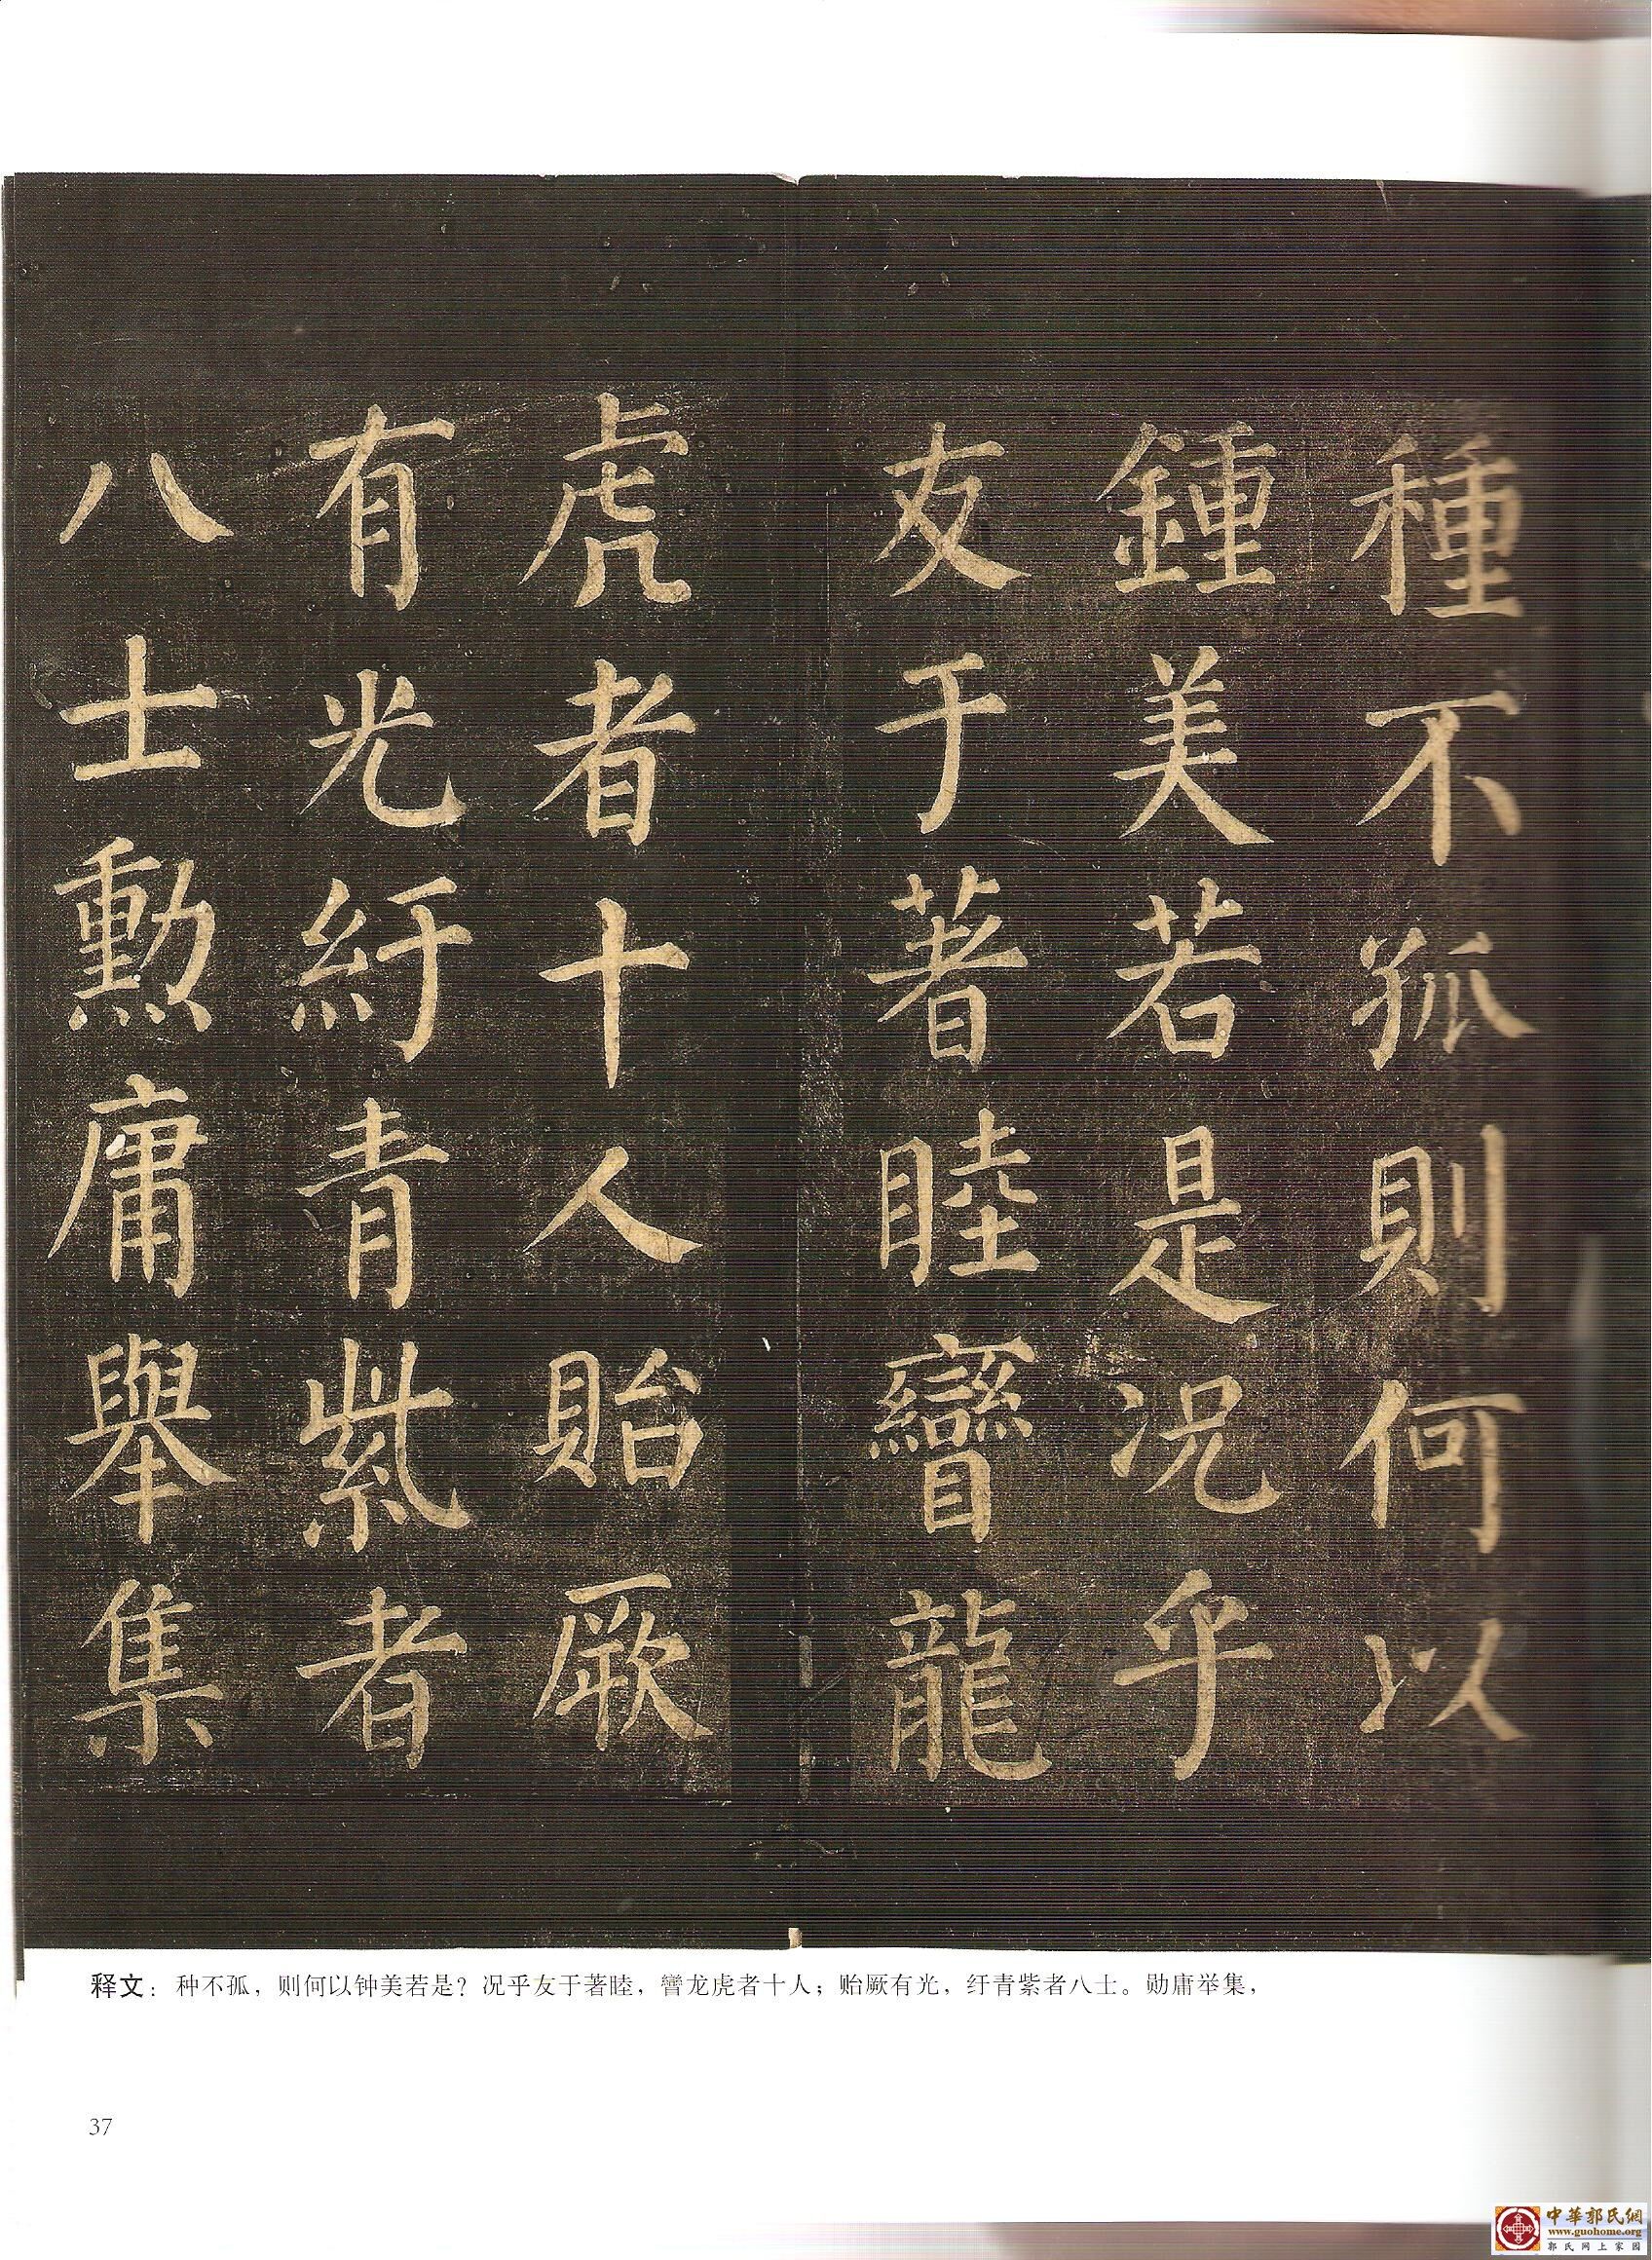 種不孤則何以
鍾美若是况乎
友于著睦矕龍
虎者十人貽厥
有光紆青紫者
八士勳庸舉集
释文：种不孤，则何以钟美若是？况乎友于著睦，矕龙虎者十人；贻厥有光，纡青紫者八士。勋庸举集，
37
中華郭氏網
www.guohome.org
郭氏网上家园